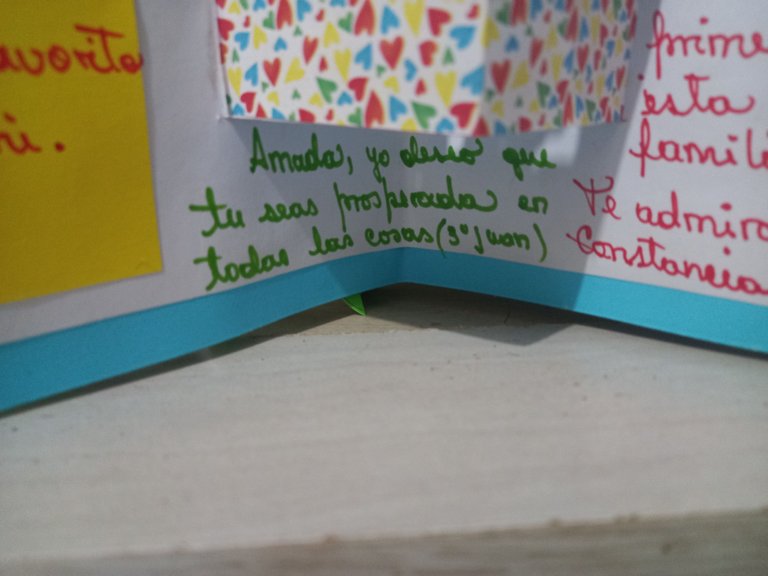 avorite
ni.
Amada, yo deseo que
tu seas prosperada en
todas las cosas (3º Juan)
prime
esta
famili
Te admiro
constancia